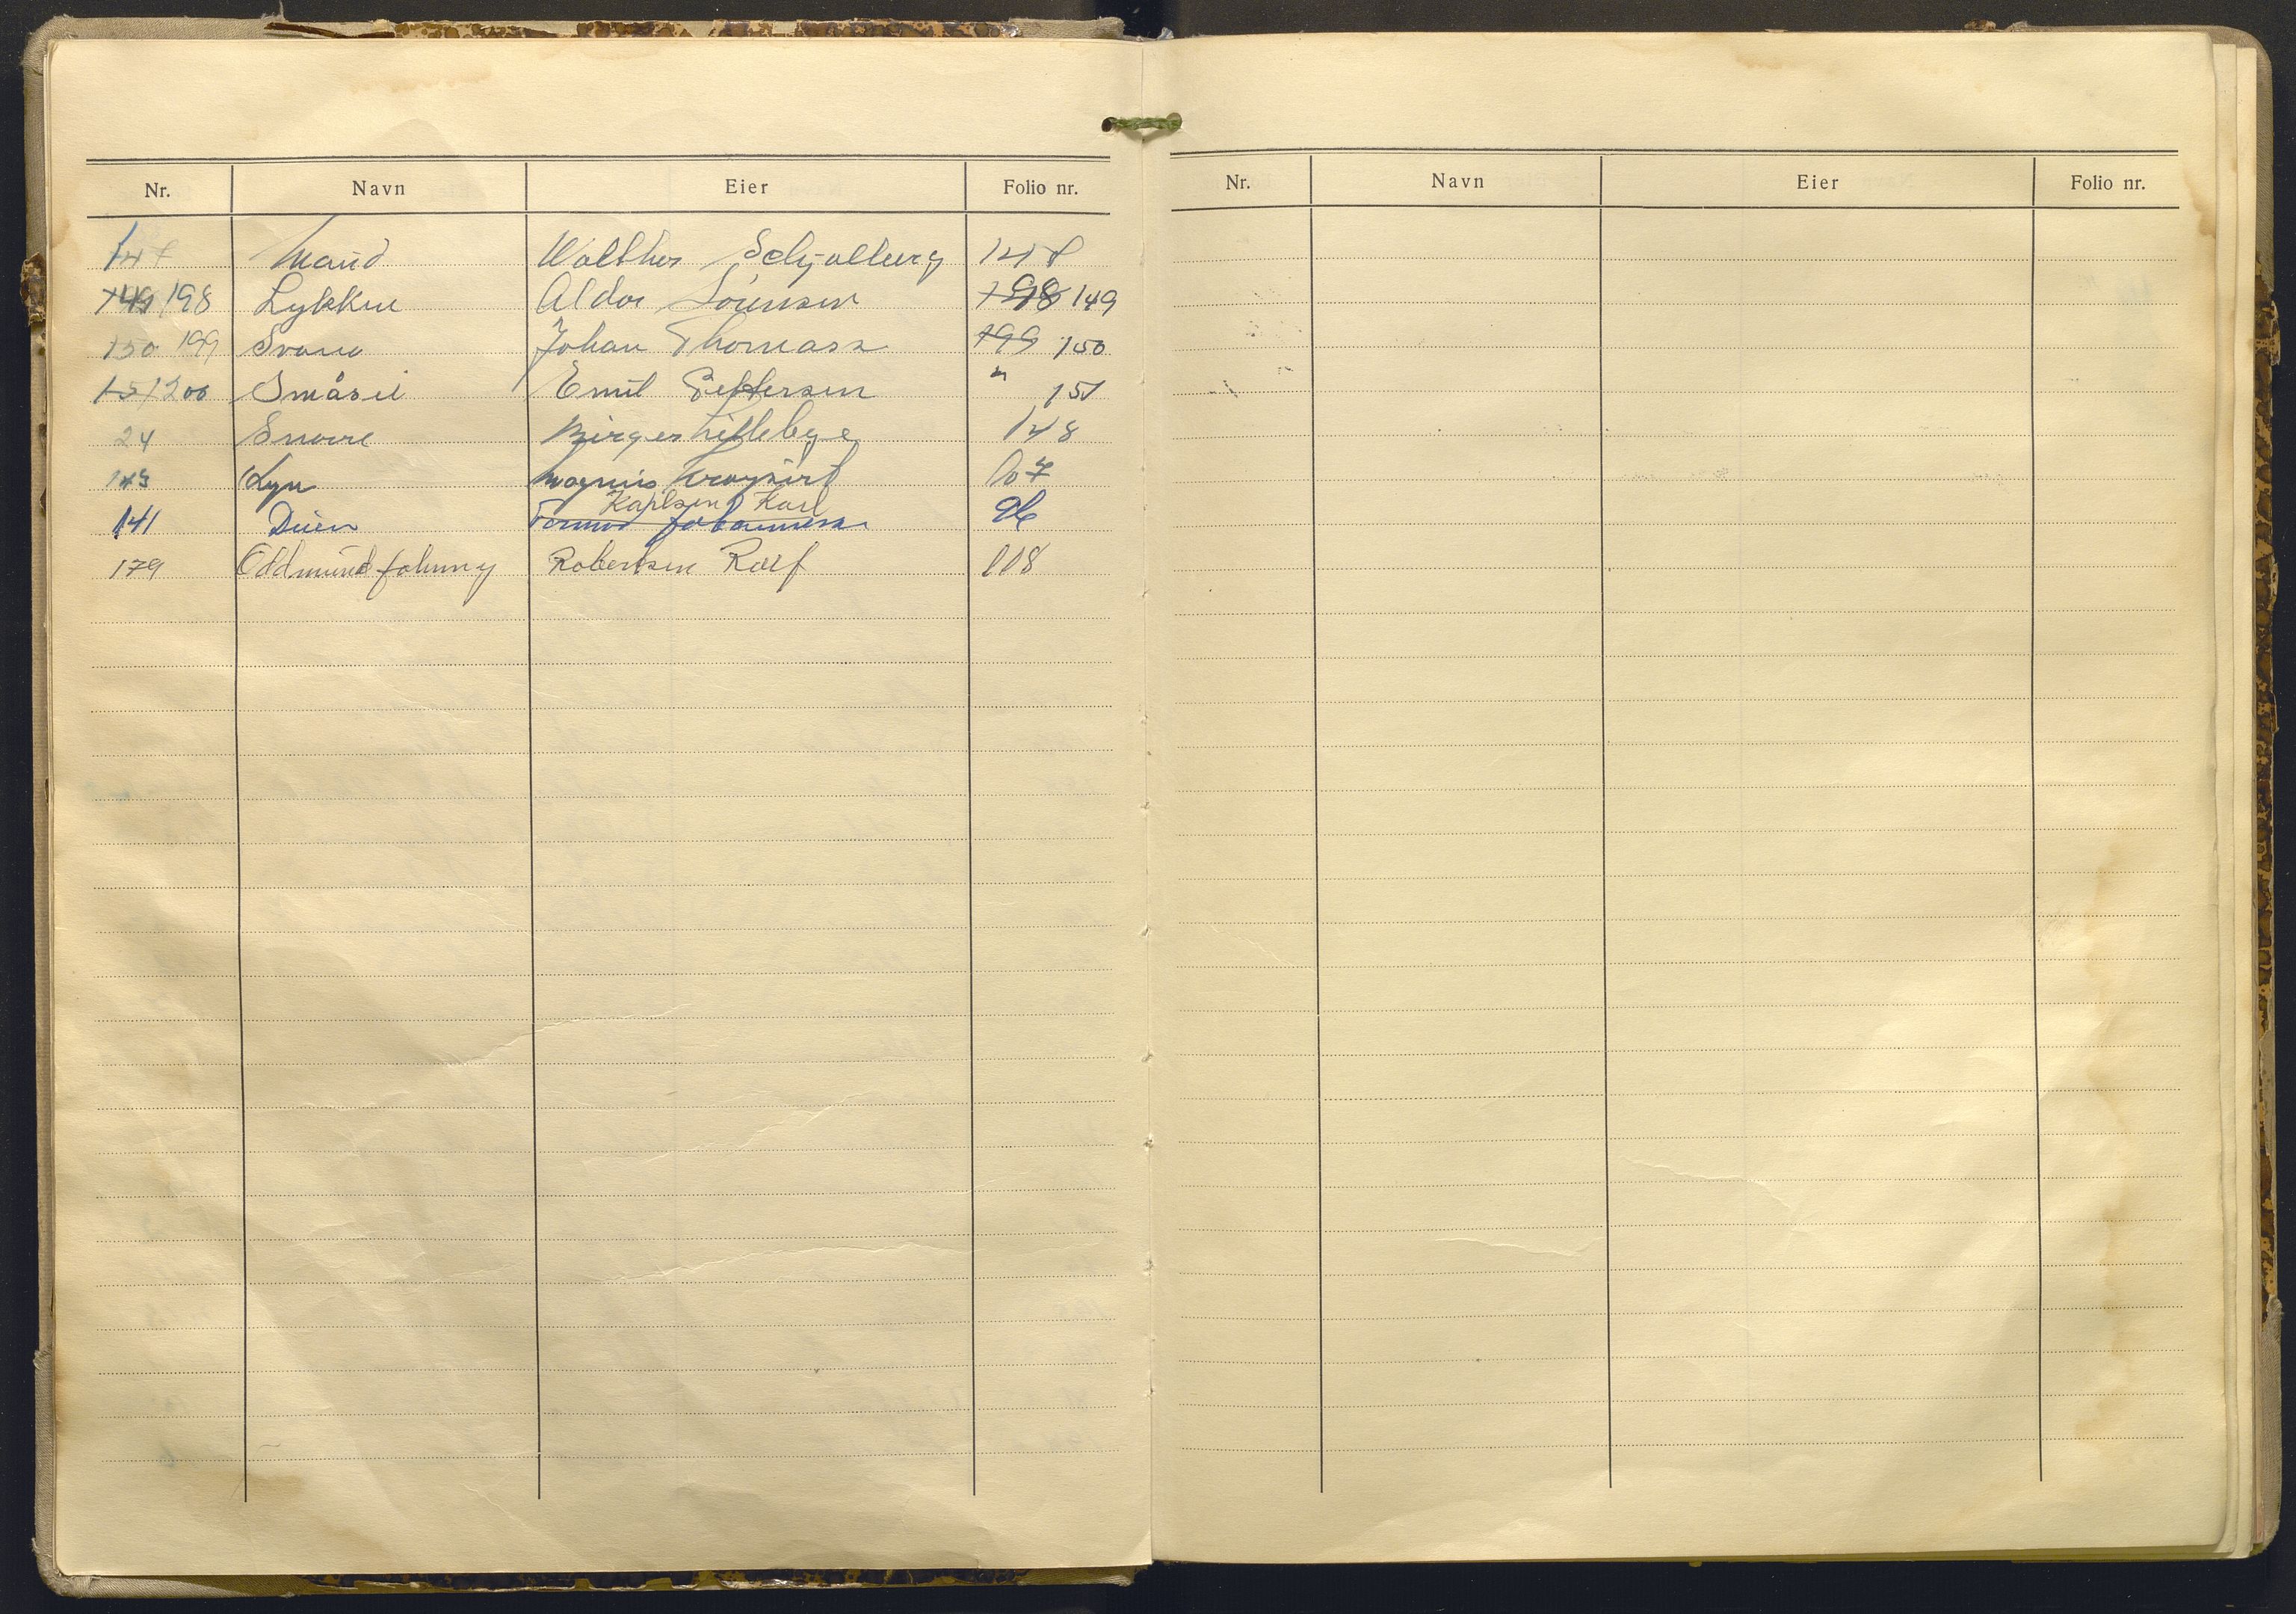 Nr. Navn Eier Folio nr. Nr. Navn Eier Folio nr.
147 Maud Walther Schjølberg 147
149 198 Lykken Aldor Sørensen 198 149
150 199 Svana Johan Thomass 199 150
151 200 Småsil Emil Pettersen " 151
24 Snorre Birger Lillebye 148
143 Lyn Magnus 107
Karlsen Karl
141 Duen Tormod Johannessen 96
179 Oddmund Johnny Robertsen Rolf 118